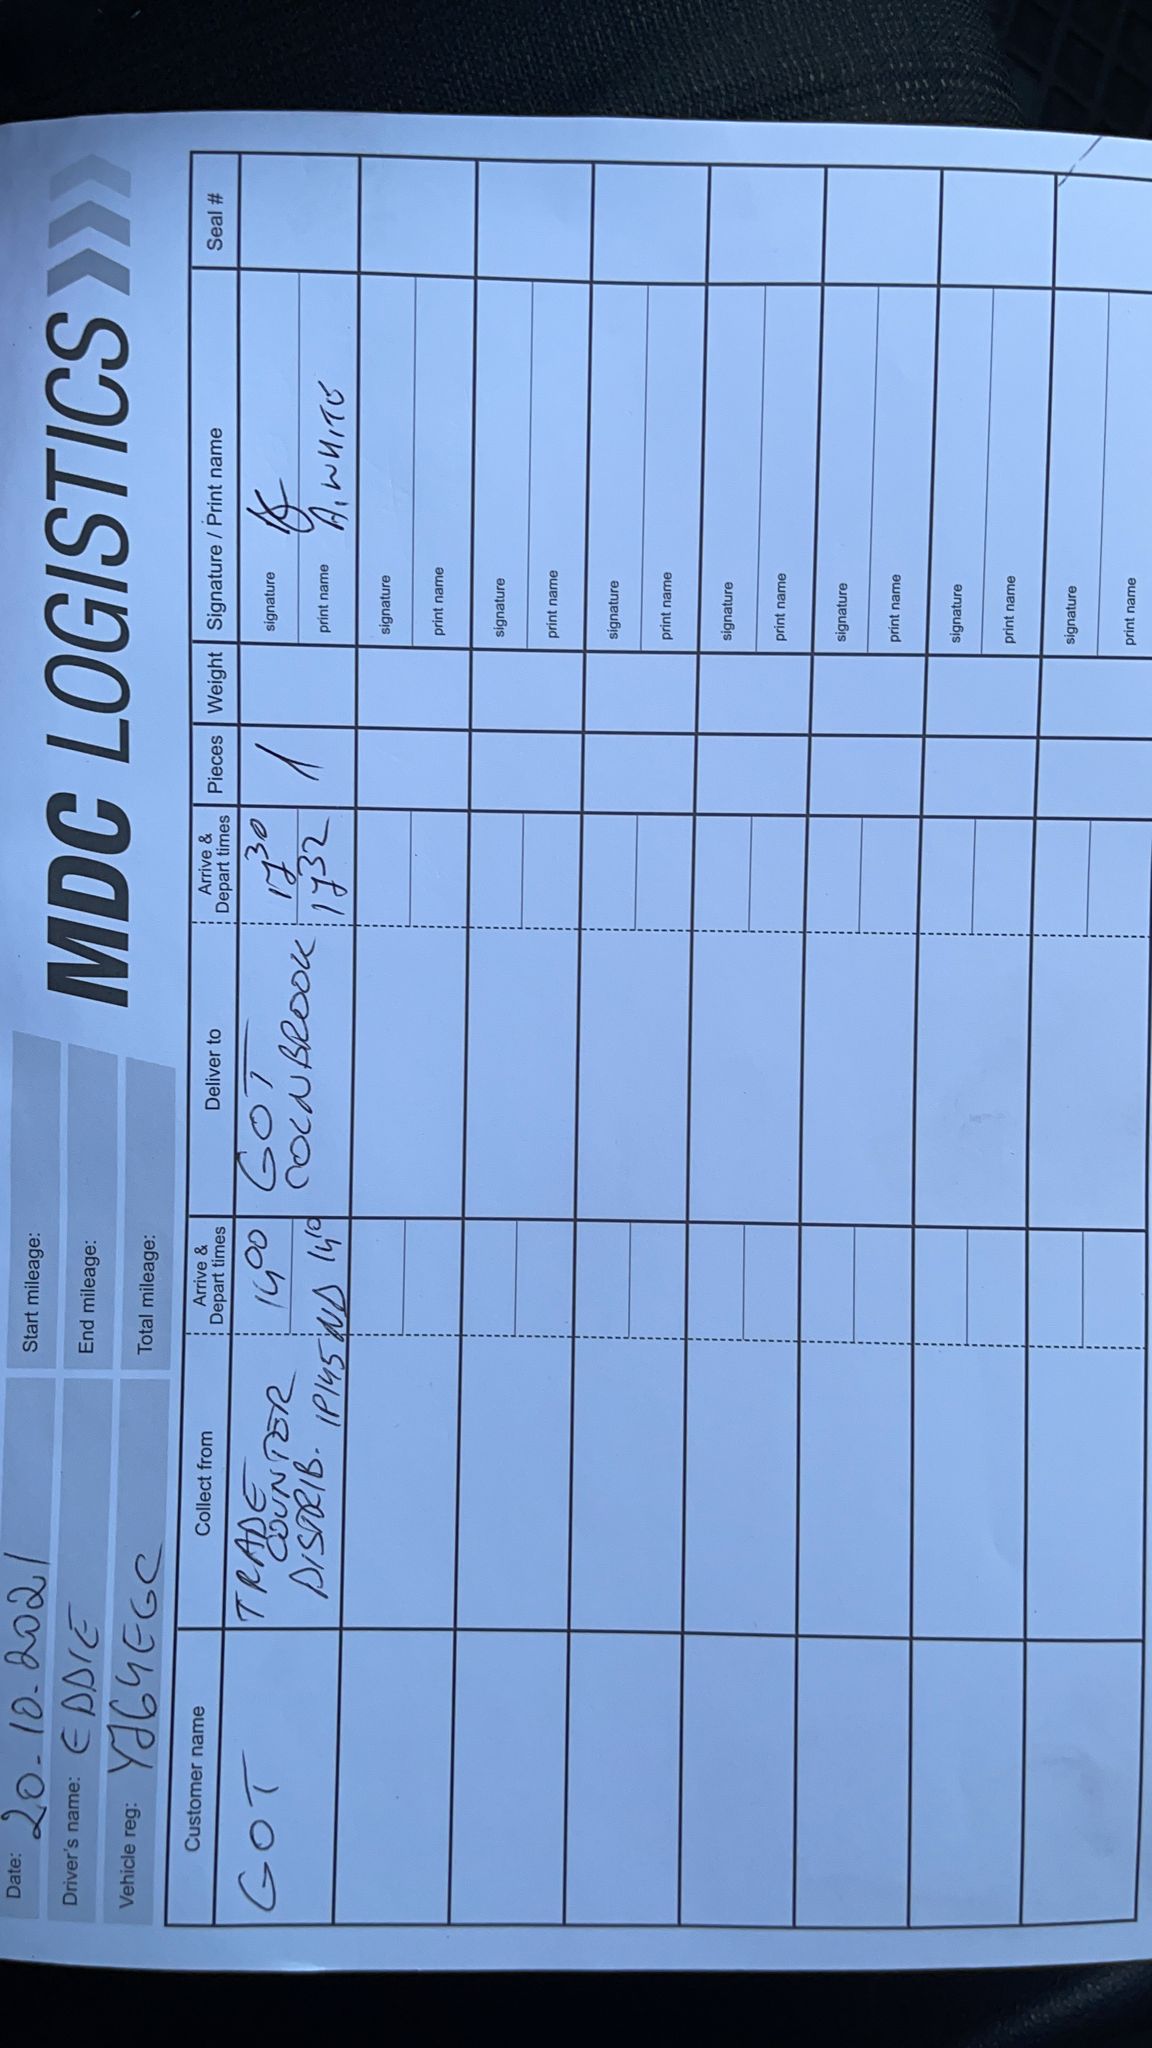 Date: 20-10-2021
Driver's name: EDDIE
Vehicle reg: YJ64EGC
Start mileage:
End mileage:
Total mileage:
MDC LOGISTICS
Customer name Collect from Arrive & Depart times Deliver to Arrive & Depart times Pieces Weight Signature / Print name Seal #
GOT TRADE 14 00 GOT 17 30 signature
COUNTER
DISTRIB. IP14 5 ND 14 10 COLNBROOK 17 32 1 print name A. WHITE
signature
print name
signature
print name
signature
print name
signature
print name
signature
print name
signature
print name
signature
print name